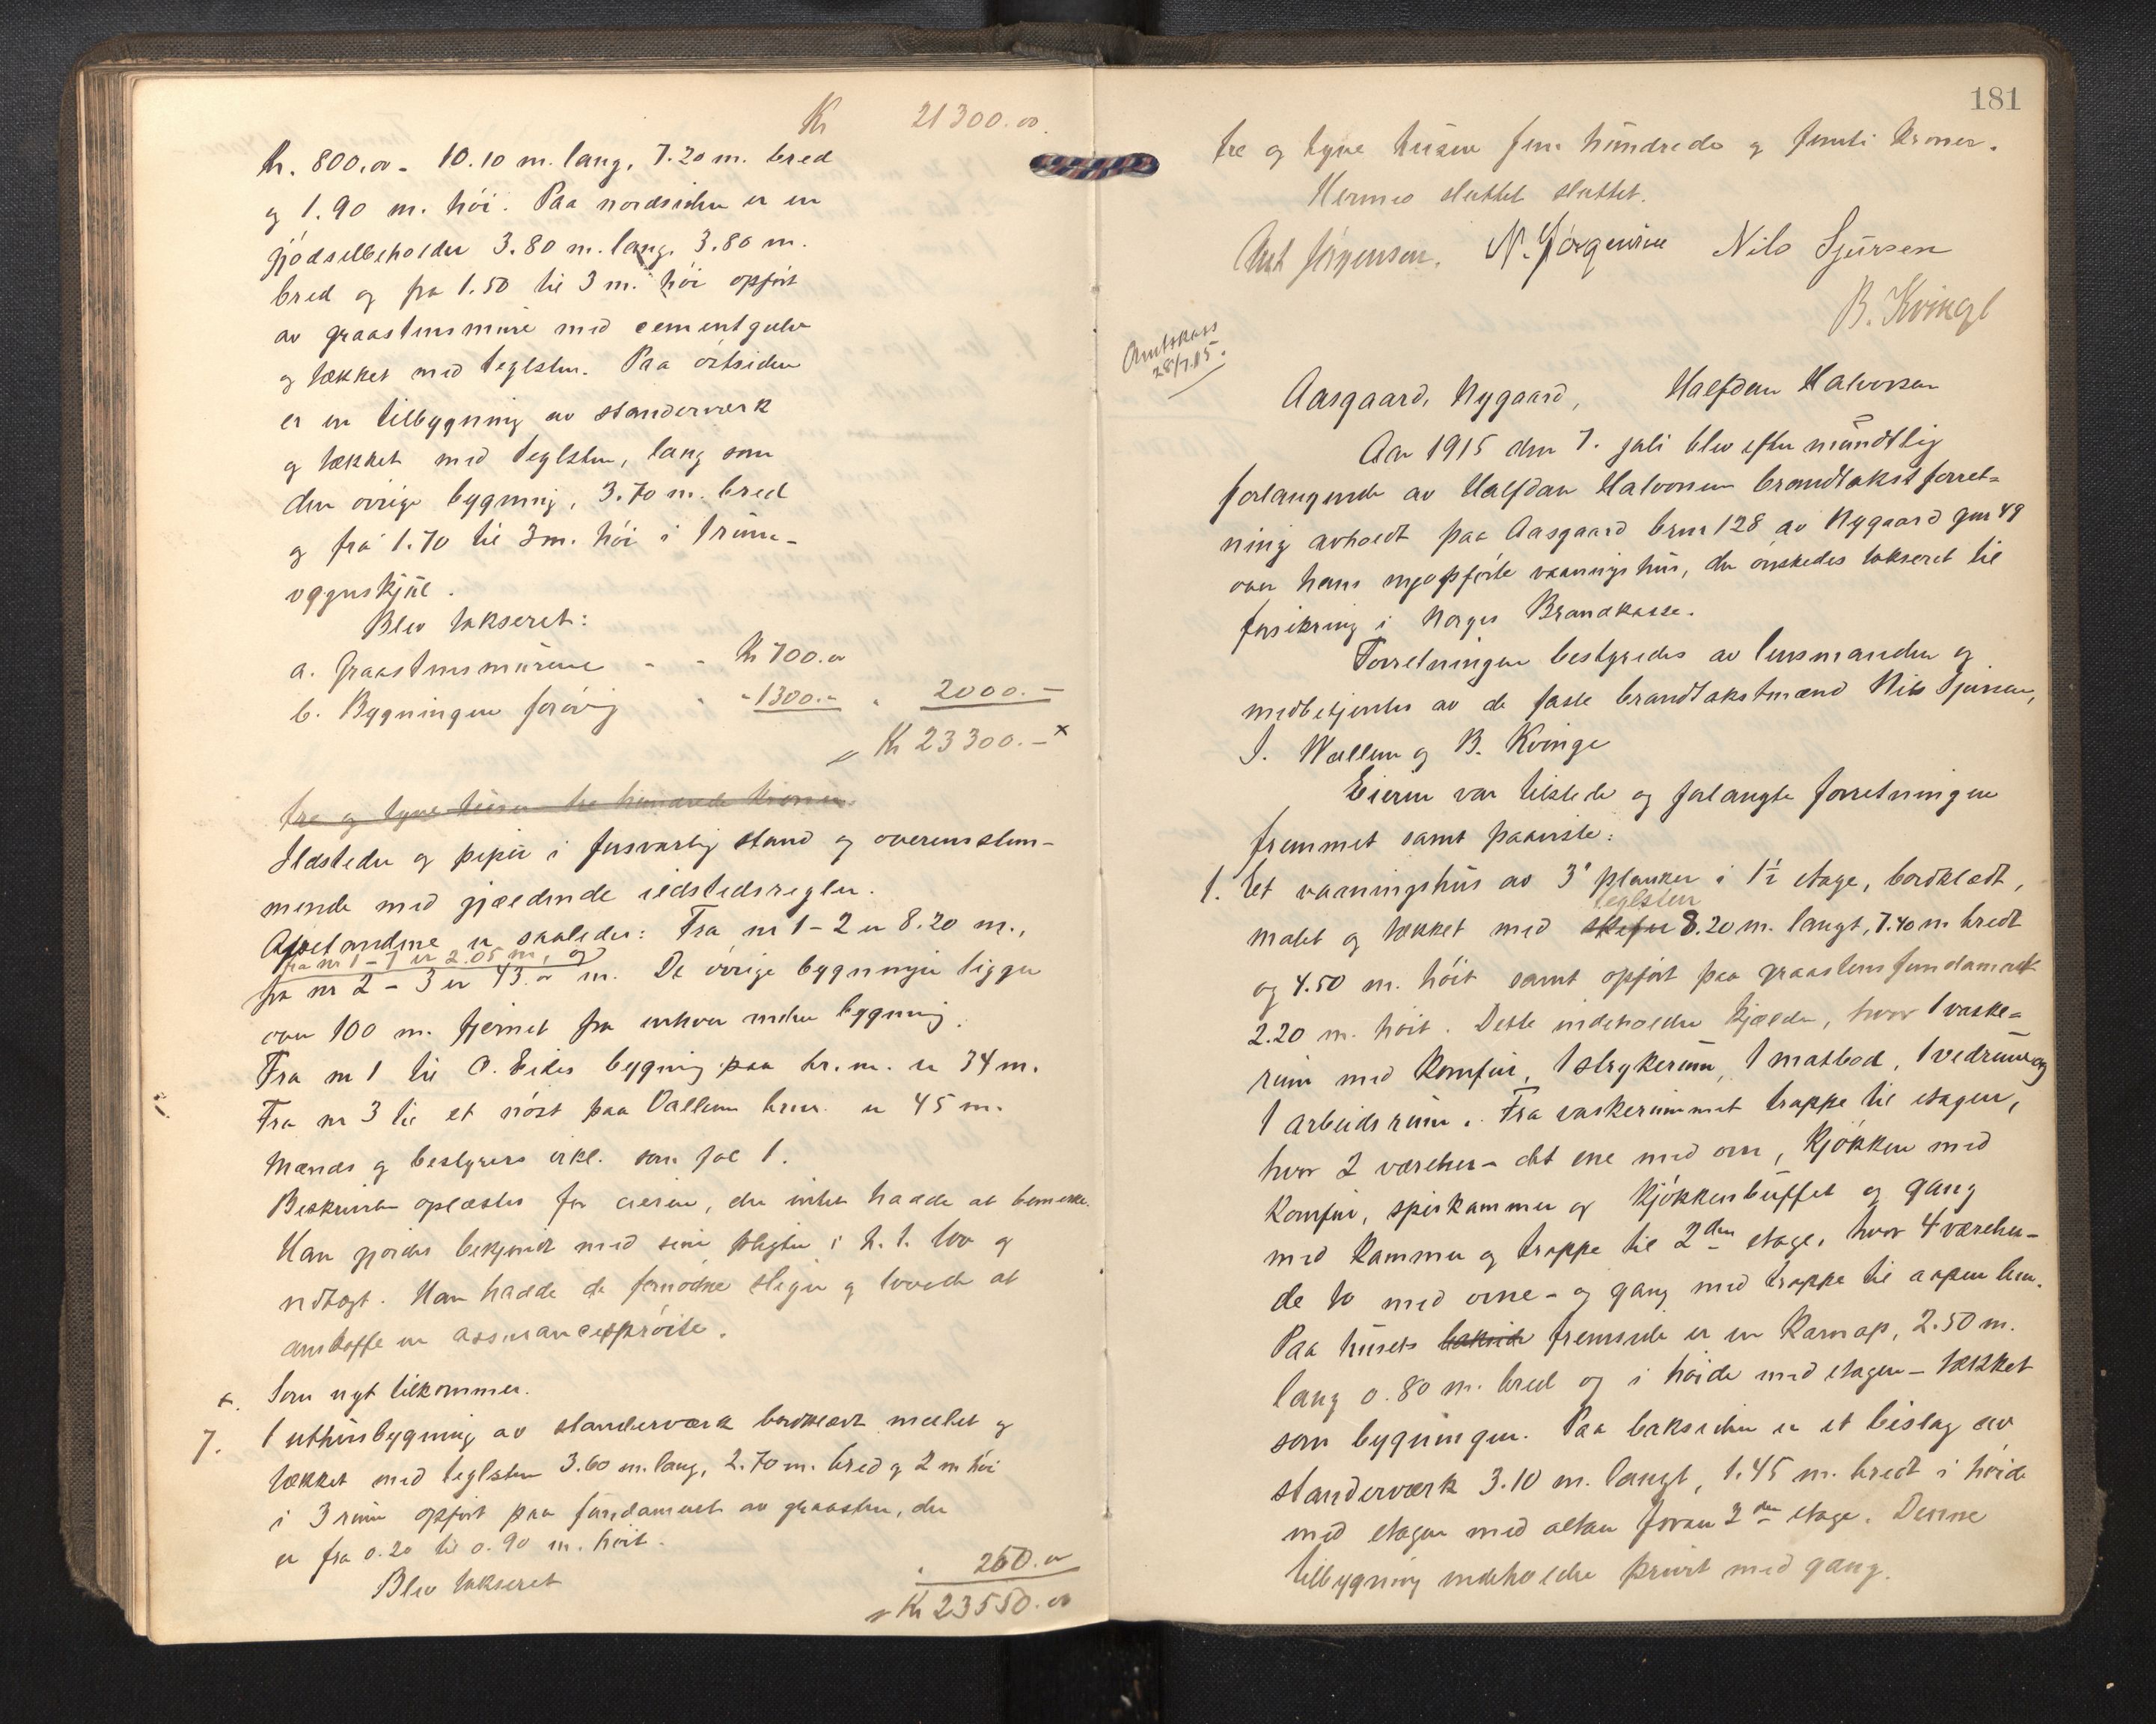 Kr 21300.00
kr. 800.00 - 10.10 m. lang, 7.20 m. bred
og 1.90 m. høi. Paa nordsiden er en
gjødselbeholder 3.80 m. lang, 3.80 m.
bred og fra 1.50 til 3 m. høi opført
av graastensmure med cementgulv
og tækket med teglsten. Paa østsiden
er en tilbygning av standerverk
og tækket med teglsten, lang som
den øvrige bygning, 3.70 m. bred
og fra 1.70 til 3 m. høi i 1 rum -
vognskjul.
Blev takseret:
a. Graastensmurene - - Kr 700.00
b. Bygningen forøvrig " - 1300.- " 2000.-
Kr 23300.- x
tre og tyve tusen tre hundrede kroner.
Ildsteder og piper i forsvarlig stand og overensstem-
mende med gjældende ildstedsregler.
Avstandene er saaledes: Fra nr 1 - 2 er 8.20 m.,
fra nr 1 - 7 er 2.05 m, og
fra nr 2 - 3 er 43.00 m. De øvrige bygninger ligger
over 100 m. fjernet fra enhver anden bygning.
Fra nr 1 til O. Eides bygning paa br.nr. er 34 m.
Fra nr 3 til et nøst paa Vallem brnr. er 45 m.
Mænds og bestyrers erkl. som fol 1.
Beskrivelsen oplæstes for eieren, der intet hadde at bemerke.
Han gjordes bekjendt med sine pligter i h. t. lov og
vedtægt. Han hadde de fornødne stiger og lovede at
anskaffe en assurancesprøite.
x. Som nyt tilkommer.
7. 1 uthusbygning av standerværk bordklædt malet og
tækket med teglsten 3.60 m. lang, 2.70 m. bred og 2 m høi
i 3 rum opført paa fundament av graasten, der
er fra 0.20 til 0.90 m. høit.
Blev takseret " 250.00
Kr 23550.00
181
tre og tyve tusen fem hundrede og femti kroner.
Hermed sluttet sluttet.
Ant Jørgensen. N. Jørgensen Nils Sjursen
B. Kvinge
Amtskass
28/7.15.
Aasgaard, Nygaard, Halfdan Halvorsen
Aar 1915 den 7. juli blev efter mundtlig
forlangende av Halfdan Halvorsen brandtakstforret-
ning avholdt paa Aasgaard brnr 128 av Nygaard gnr 49
over hans nyopførte vaaningshus, der ønskedes takseret til
forsikring i Norges Brandkasse.
Forretningen bestyredes av lensmanden og
medbetjentes av de faste brandtakstmænd Nils Sjursen,
I. Wallem og B. Kvinge
Eieren var tilstede og forlangte forretningen
fremmet samt paaviste:
1. Et vaaningshus av 3" planker i 1½ etage, bordklædt,
teglsten
malet og tækket med skifer 8.20 m. langt, 7.40 m bredt
og 4.50 m. høit samt opført paa graastensfundament
2.20 m. høit. Dette indeholder kjælder, hvor 1 vaske-
rum med komfur, 1 strykerum, 1 matbod, 1 vedrum og
1 arbeidsrum. Fra vaskerummet trappe til etagen,
hvor 2 værelser - det ene med ovn, kjøkken med
komfur, spiskammer og kjøkkenbuffet og gang
med kammer og trappe til 2den etage, hvor 4 værelser -
de to med ovne - og gang med trappe til aapen lem.
Paa husets bakside fremside er en karnap, 2.50 m.
lang 0.80 m. bred og i høide med etagen - tækket
som bygningen. Paa baksiden er et bislag av
standerværk 3.10 m. langt, 1.45 m. bredt i høide
med etagen med altan foran 2den etage. Denne
tilbygning indeholder privet med gang.